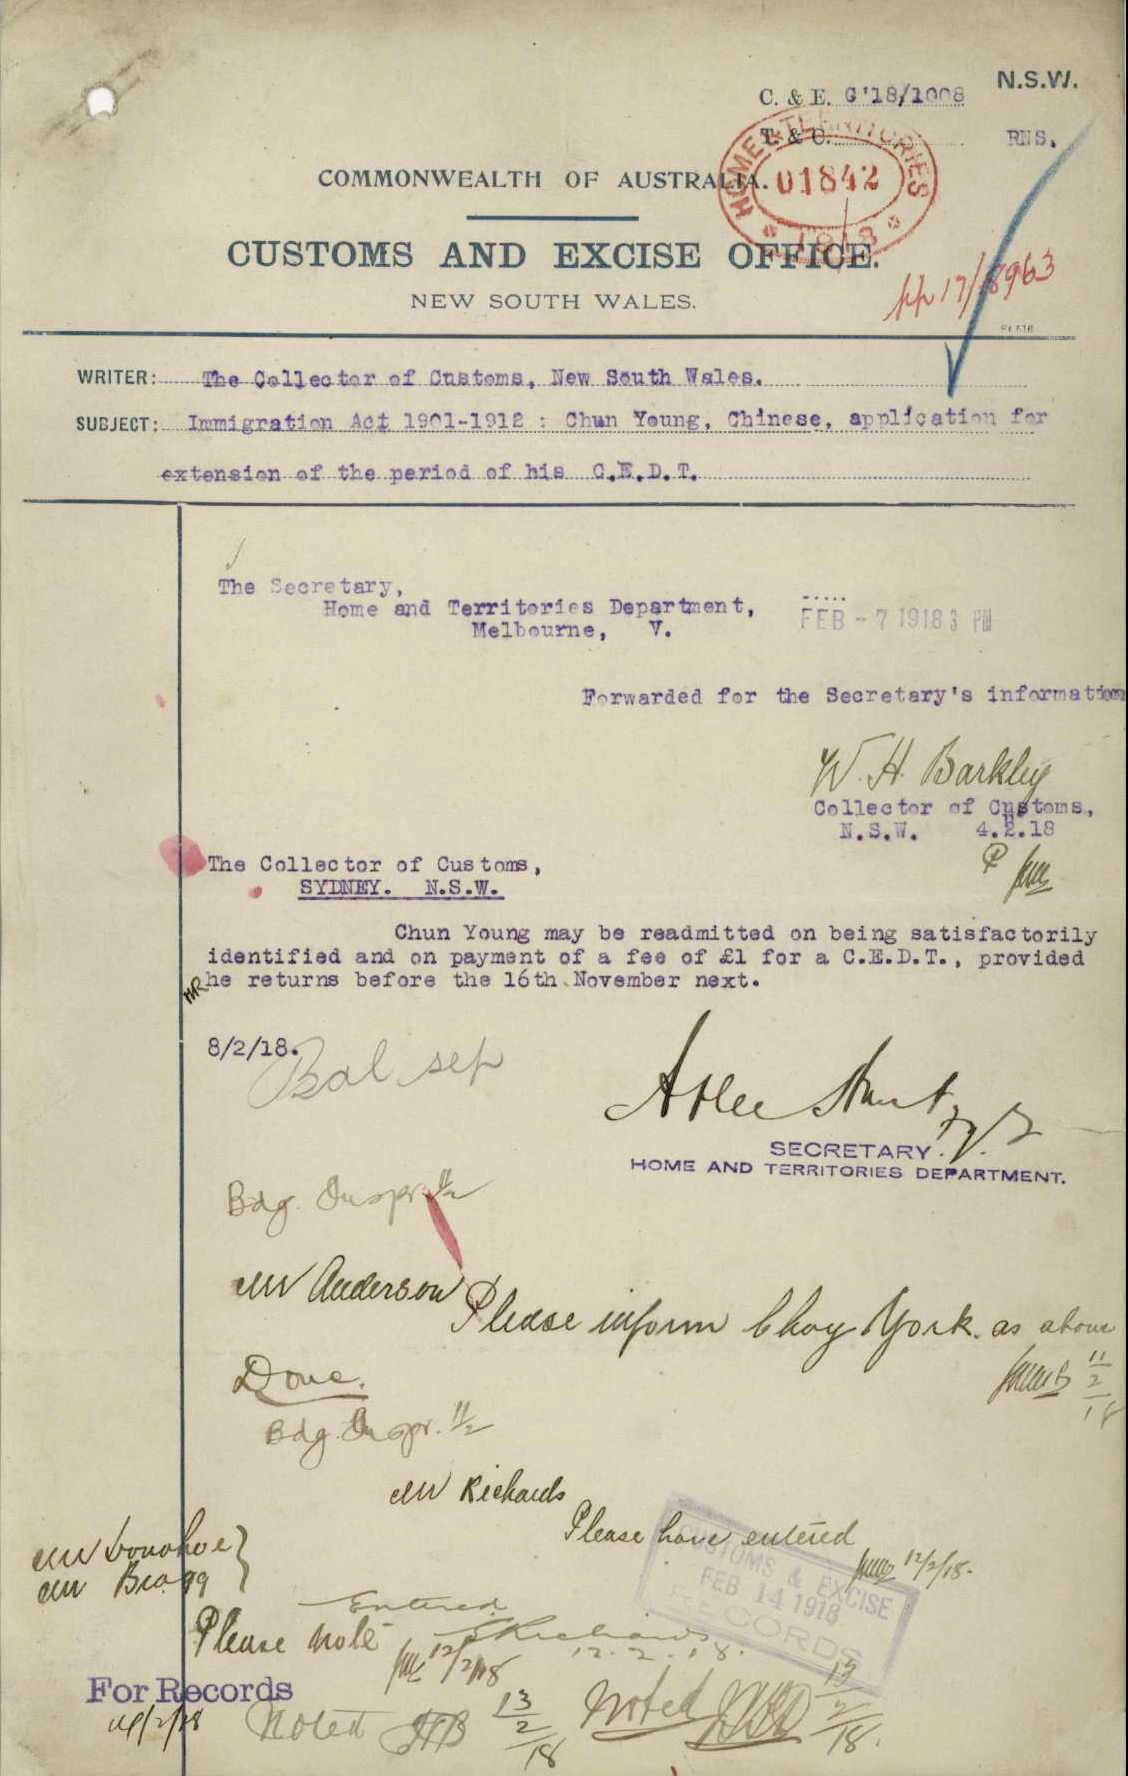 N.S.W.
C. & E. G'18/1008
T. & C.
RNS.
HOME & TERRITORIES
01842
1918
COMMONWEALTH OF AUSTRALIA.
CUSTOMS AND EXCISE OFFICE.
NEW SOUTH WALES.
pp 17/18963
WRITER: The Collector of Customs, New South Wales.
SUBJECT: Immigration Act 1901-1912 : Chun Young, Chinese, application for
extension of the period of his C.E.D.T.
The Secretary,
Home and Territories Department,
Melbourne, V.
FEB - 7 1918 3 PM
Forwarded for the Secretary's information
W. H. Barkley
Collector of Customs,
N.S.W. 4.2.18
The Collector of Customs,
SYDNEY. N.S.W.
Chun Young may be readmitted on being satisfactorily
identified and on payment of a fee of £1 for a C.E.D.T., provided
he returns before the 16th November next.
8/2/18.
Atlee Hunt
SECRETARY.
HOME AND TERRITORIES DEPARTMENT.
Bdg. Inspr. 11/2
Mr Anderson
Please inform Choy York as above
11/2/18
Done.
Bdg. Inspr. 11/2
Mr Richards
Please have entered
12/2/18.
Mr Donohoe
Mr Bragg
Please note
12/2/18
Entered
Richards
12.2.18.
CUSTOMS & EXCISE
FEB 14 1918
RECORDS
For Records
Noted 13/2/18
Noted 13/2/18.